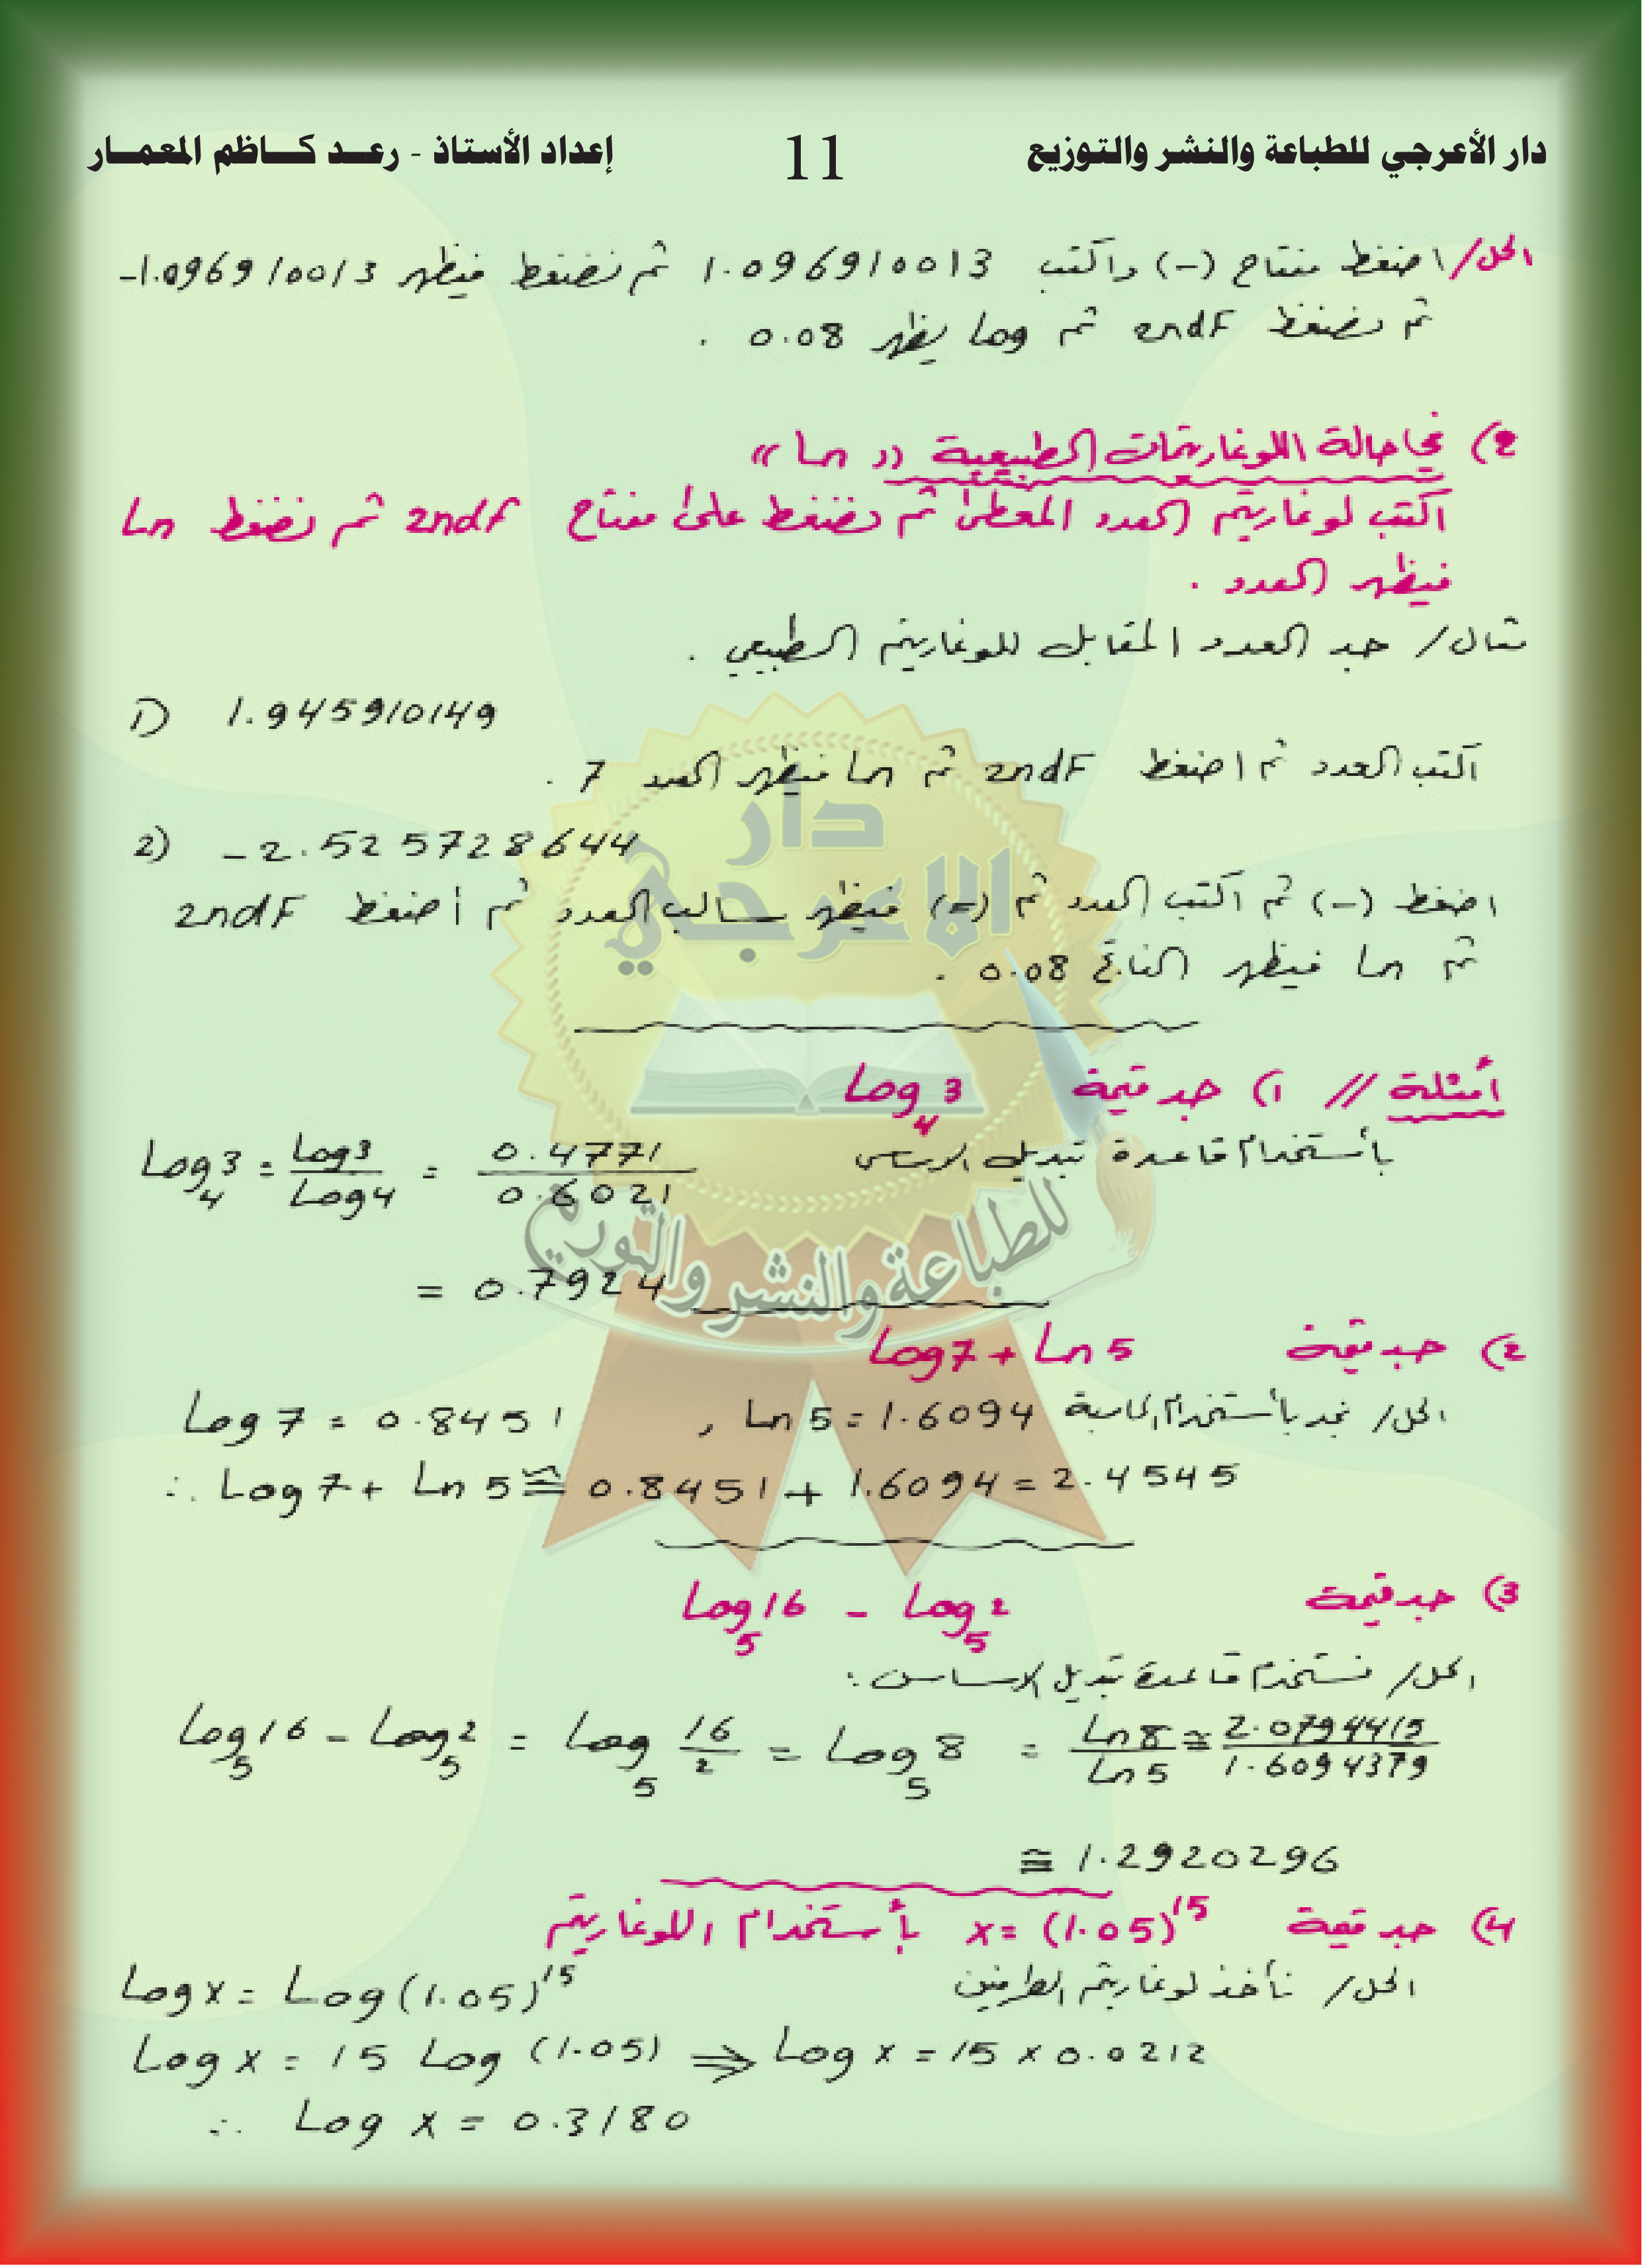 دار الأعرجي للطباعة والنشر والتوزيع 11 إعداد الأستاذ - رعـد كـاظم المعمـار
الحل/ اضغط مفتاح (-) واكتب 1.096910013 ثم نضغط فيظهر -1.096910013
ثم نضغط 2ndF ثم وما يظهر 0.08 .
2) في حالة اللوغاريتمات الطبيعية (( Ln ))
اكتب لوغاريتم العدد المعطى ثم نضغط على مفتاح 2ndf ثم نضغط Ln
فيظهر العدد .
مثال/ جد العدد المقابل للوغاريتم الطبيعي .
1) 1.945910149
اكتب العدد ثم اضغط 2ndF ثم Ln فيظهر العدد 7 .
2) -2.525728644
اضغط (-) ثم اكتب العدد ثم (=) فيظهر سالب العدد ثم أضغط 2ndF
ثم Ln فيظهر الناتج 0.08 .
دار
الاعرجي
للطباعة والنشر والتوزيع
أمثلة // 1) جد قيمة Log₄3
بأستخدام قاعدة تبديل الاساس
Log₄3 = Log3/Log4 = 0.4771/0.6021
= 0.7924
2) جد قيمة Log7 + Ln5
الحل/ نجد بأستخدام الحاسبة Log7 = 0.8451 , Ln5 = 1.6094
∴ Log7 + Ln5 ≅ 0.8451 + 1.6094 = 2.4545
3) جد قيمة Log₅16 - Log₅2
الحل/ نستخدم قاعدة تبديل الاساس :
Log₅16 - Log₅2 = Log₅ 16/2 = Log₅8 = Ln8/Ln5 ≅ 2.0794415/1.6094379
≅ 1.2920296
4) جد قيمة x = (1.05)¹⁵ بأستخدام اللوغاريتم
الحل/ نأخذ لوغاريتم الطرفين
Log x = Log(1.05)¹⁵
Log x = 15 Log (1.05) ⇒ Log x = 15 × 0.0212
∴ Log x = 0.3180